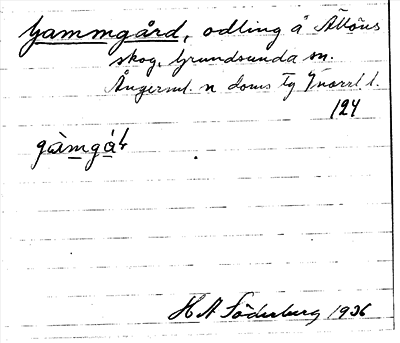 Gammgård, odling å Ältöns
skog, Grundsunda sn.
Ångerml. n doms tg Ynorrl l.
124
gàmgáɫ
H A Söderberg 1936